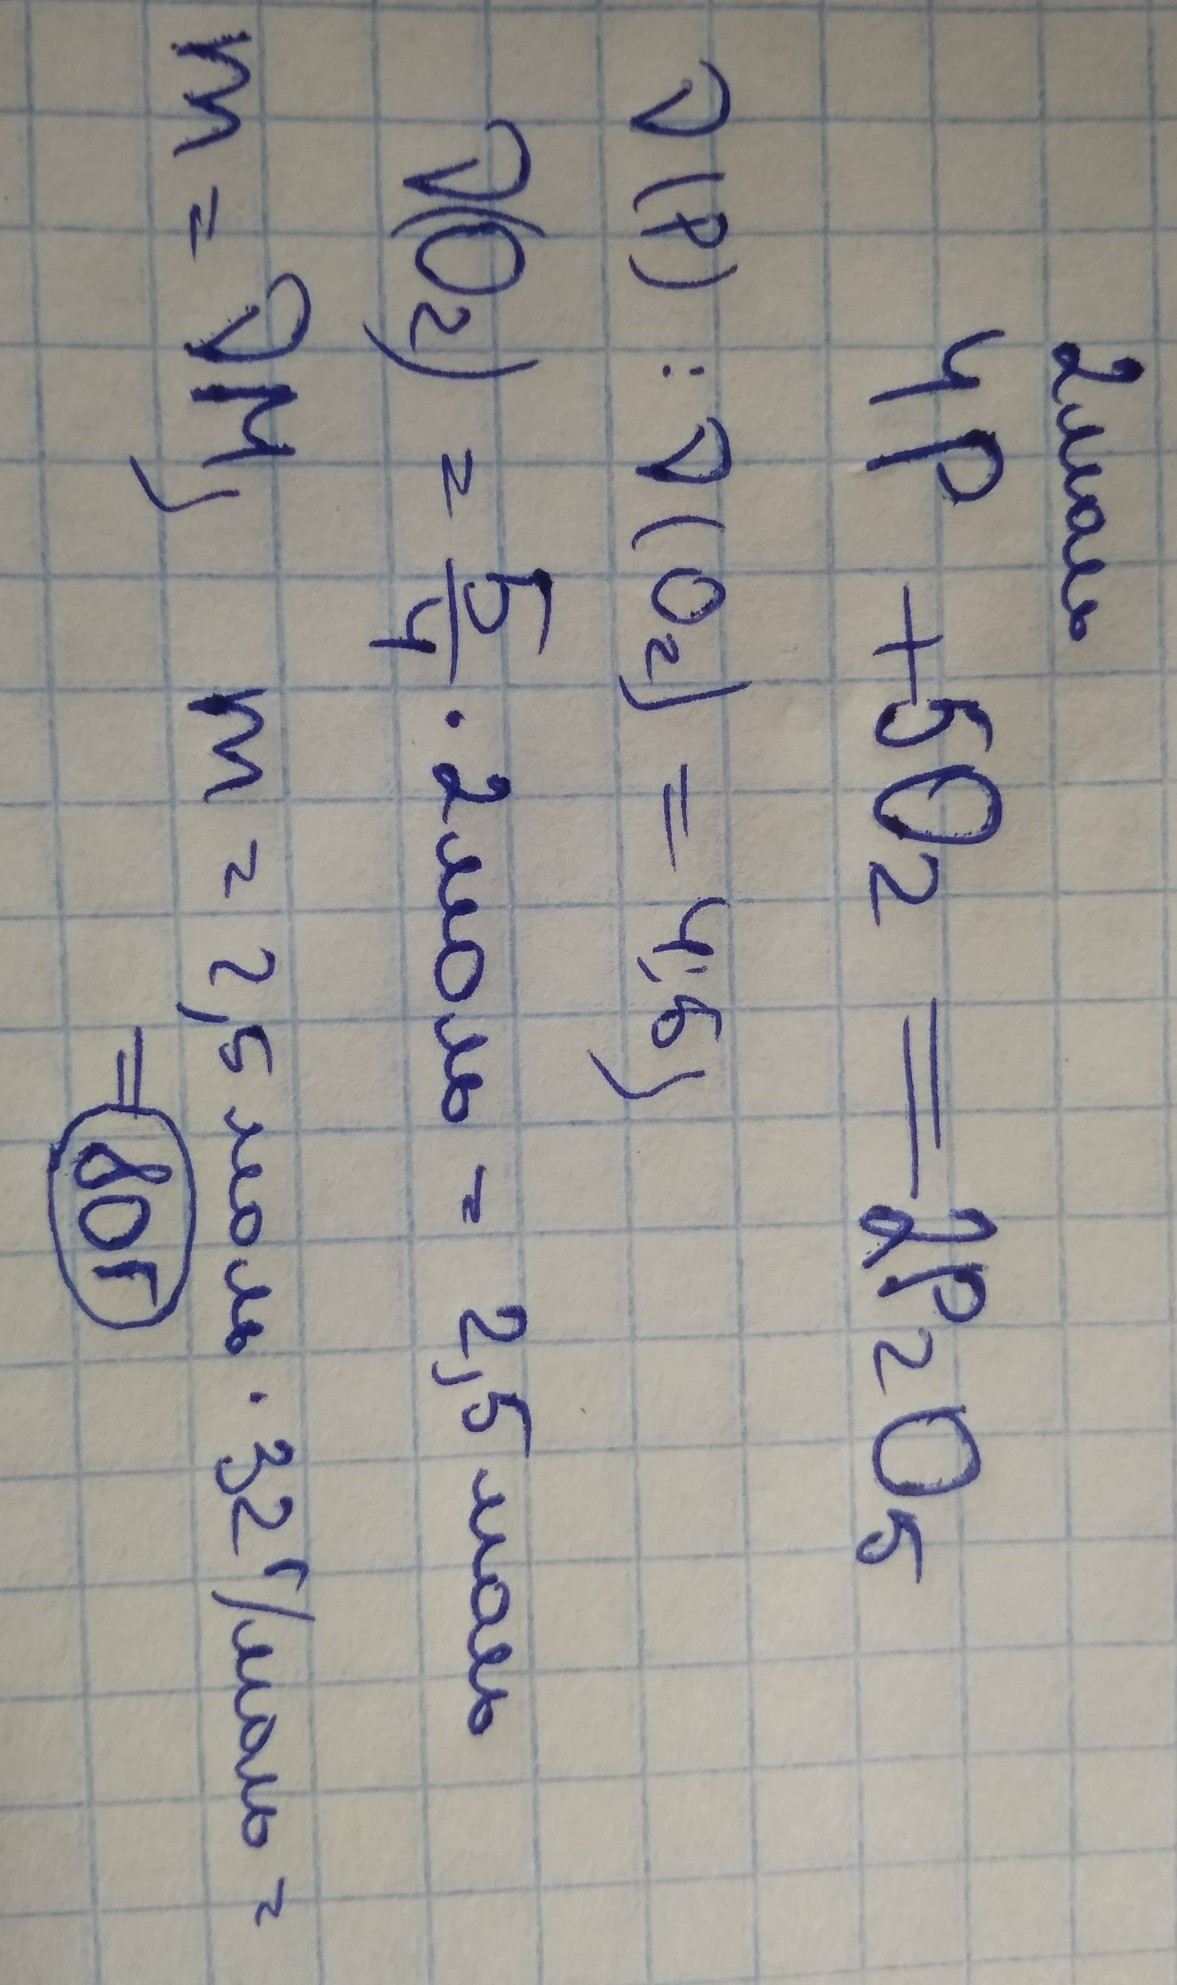 2 моль
4P + 5O₂ = 2P₂O₅
ν(P) : ν(O₂) = 4:5)
ν(O₂) = 5/4 · 2 моль = 2,5 моль
m = νM, m = 2,5 моль · 32 г/моль =
= 80г